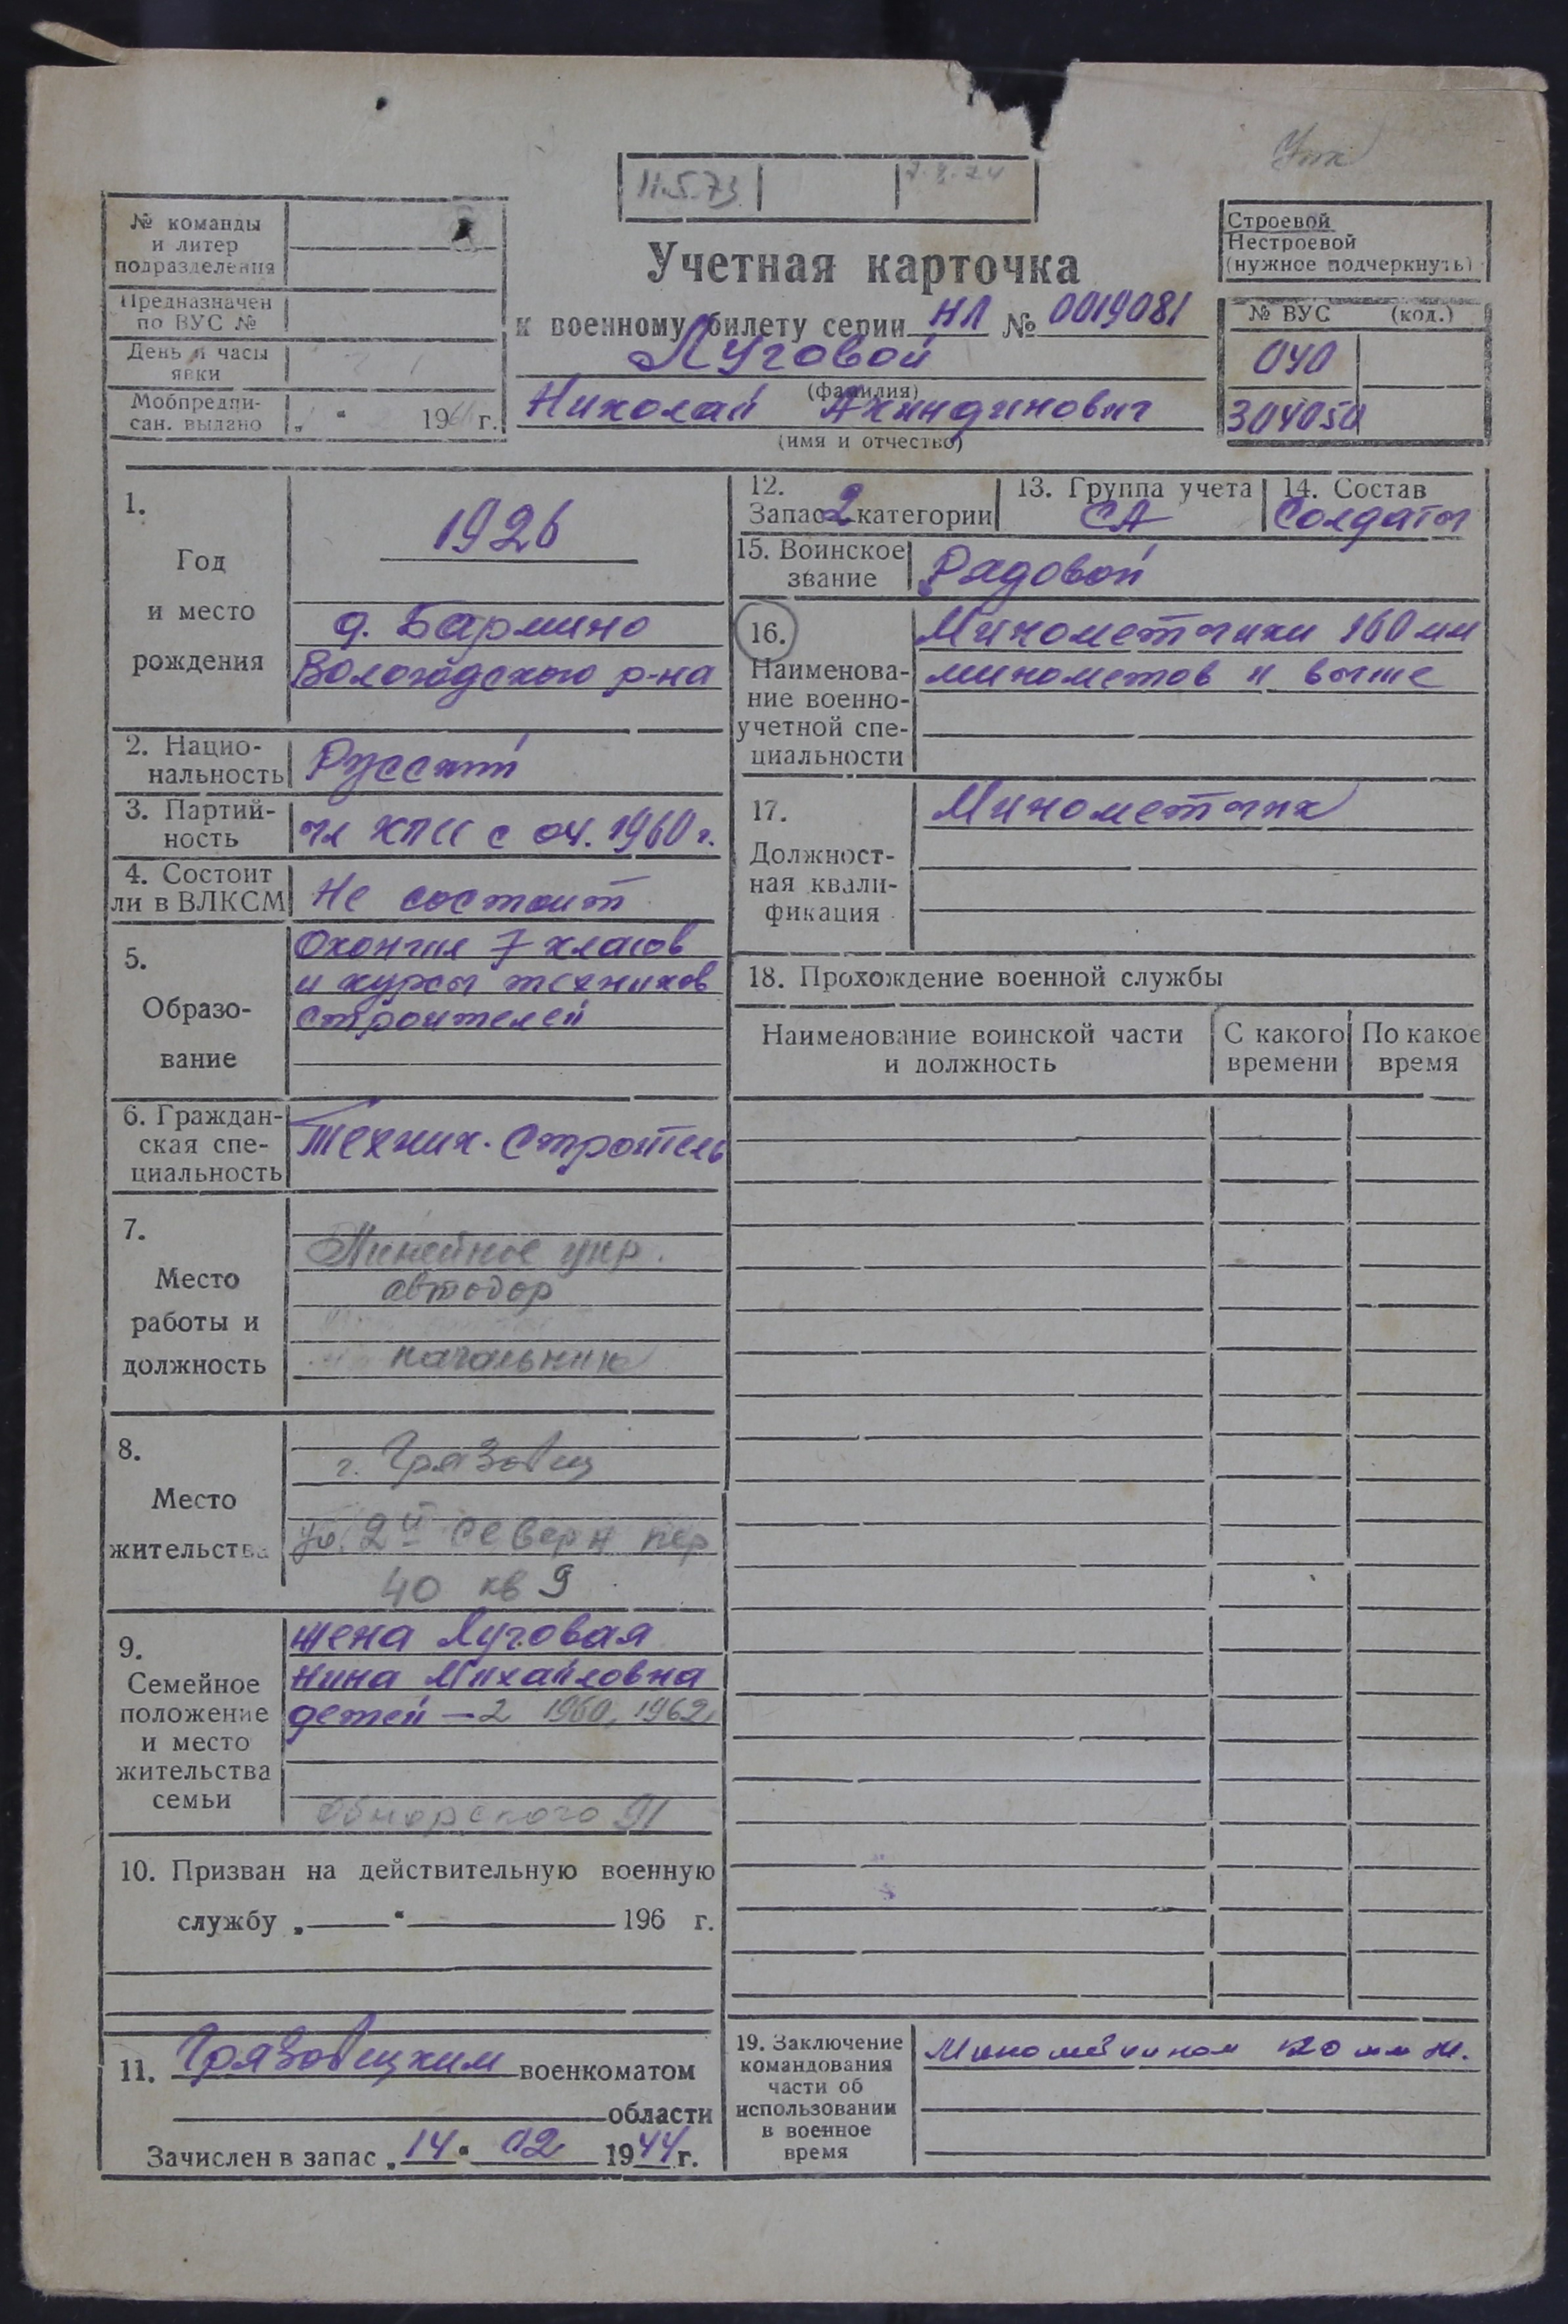 Упк
11.5.73
№ команды
и литер
подразделения
Предназначен
по ВУС №
День и часы
явки
Мобпредпи-
сан. выдано „ “ 196 г.
Учетная карточка
к военному билету серии НЛ № 0019081
Луговой
(фамилия)
Николай Акиндинович
(имя и отчество)
Строевой
Нестроевой
(нужное подчеркнуть)
№ ВУС (код.)
040
304050
1.
Год
и место
рождения
1926
д. Бармино
Вологодского р-на
2. Нацио-
нальность
Русский
3. Партий-
ность
чл КПСС с 04. 1960 г.
4. Состоит
ли в ВЛКСМ
Не состоит
5.
Образо-
вание
Окончил 7 класов
и курсы техников
строителей
6. Граждан-
ская спе-
циальность
Техник-строитель
7.
Место
работы и
должность
Линейное упр.
автодор
начальник
8.
Место
жительства
г. Грязовец
ул. 2й Северн пер
40 кв 9
9.
Семейное
положение
и место
жительства
семьи
жена Луговая
Нина Михайловна
детей — 2 1960, 1962
Обнорского 91
10. Призван на действительную военную
службу „ “ 196 г.
11. Грязовецким военкоматом
области
Зачислен в запас „14“ 02 1944 г.
12.
Запас 2 категории
13. Группа учета
СА
14. Состав
Солдаты
15. Воинское
звание
Рядовой
16.
Наименова-
ние военно-
учетной спе-
циальности
Минометчики 160 мм
минометов и выше
17.
Должност-
ная квали-
фикация
Минометчик
18. Прохождение военной службы
Наименование воинской части
и должность
С какого
времени
По какое
время
19. Заключение
командования
части об
использовании
в военное
время
Минометчиком 120 мм м.